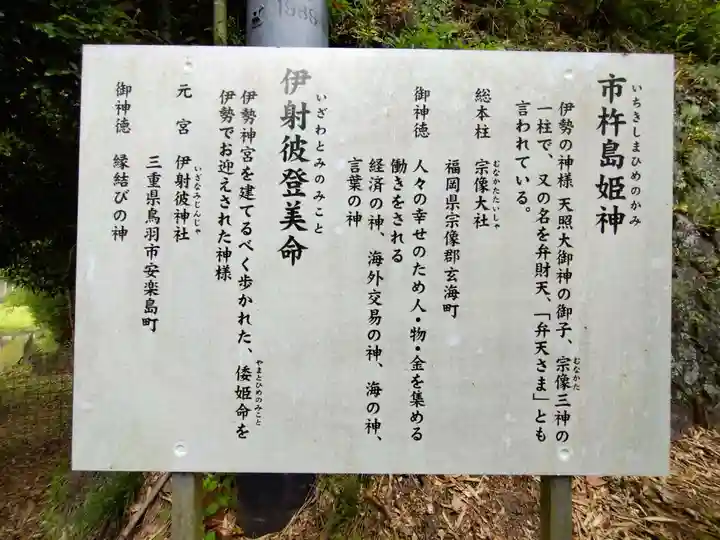 市杵島姫神
いちきしまひめのかみ
伊勢の神様 天照大御神の御子、宗像三神の
むなかた
一柱で、又の名を弁財天、「弁天さま」とも
言われている。
総本柱 宗像大社
むなかたたいしゃ
福岡県宗像郡玄海町
御神徳 人々の幸せのため人・物・金を集める
働きをされる
経済の神、海外交易の神、海の神、
言葉の神
伊射彼登美命
いざわとみのみこと
伊勢神宮を建てるべく歩かれた、倭姫命を
やまとひめのみこと
伊勢でお迎えされた神様
元宮 伊射彼神社
いざなみじんじゃ
三重県鳥羽市安楽島町
御神徳 縁結びの神